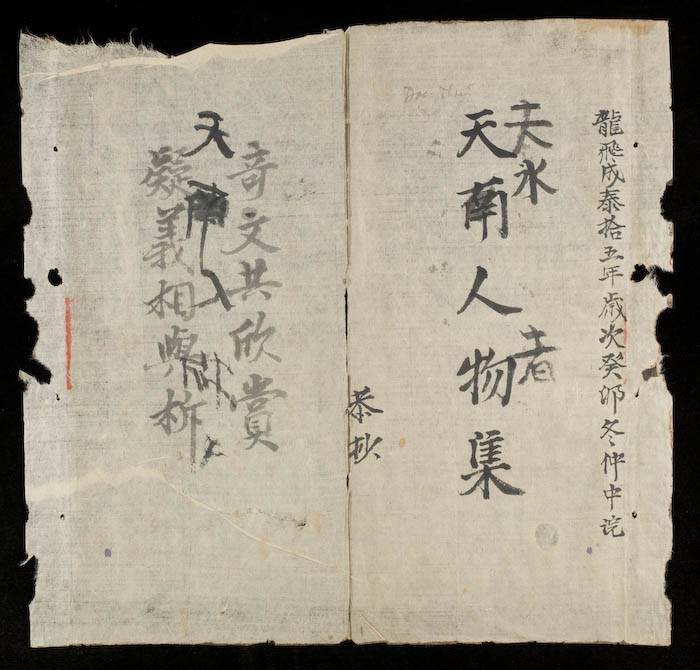 龍飛成泰拾五年歲次癸卯冬仲中浣
天南人物集
恭抄
奇文共欣賞
疑義相與析
天南人物